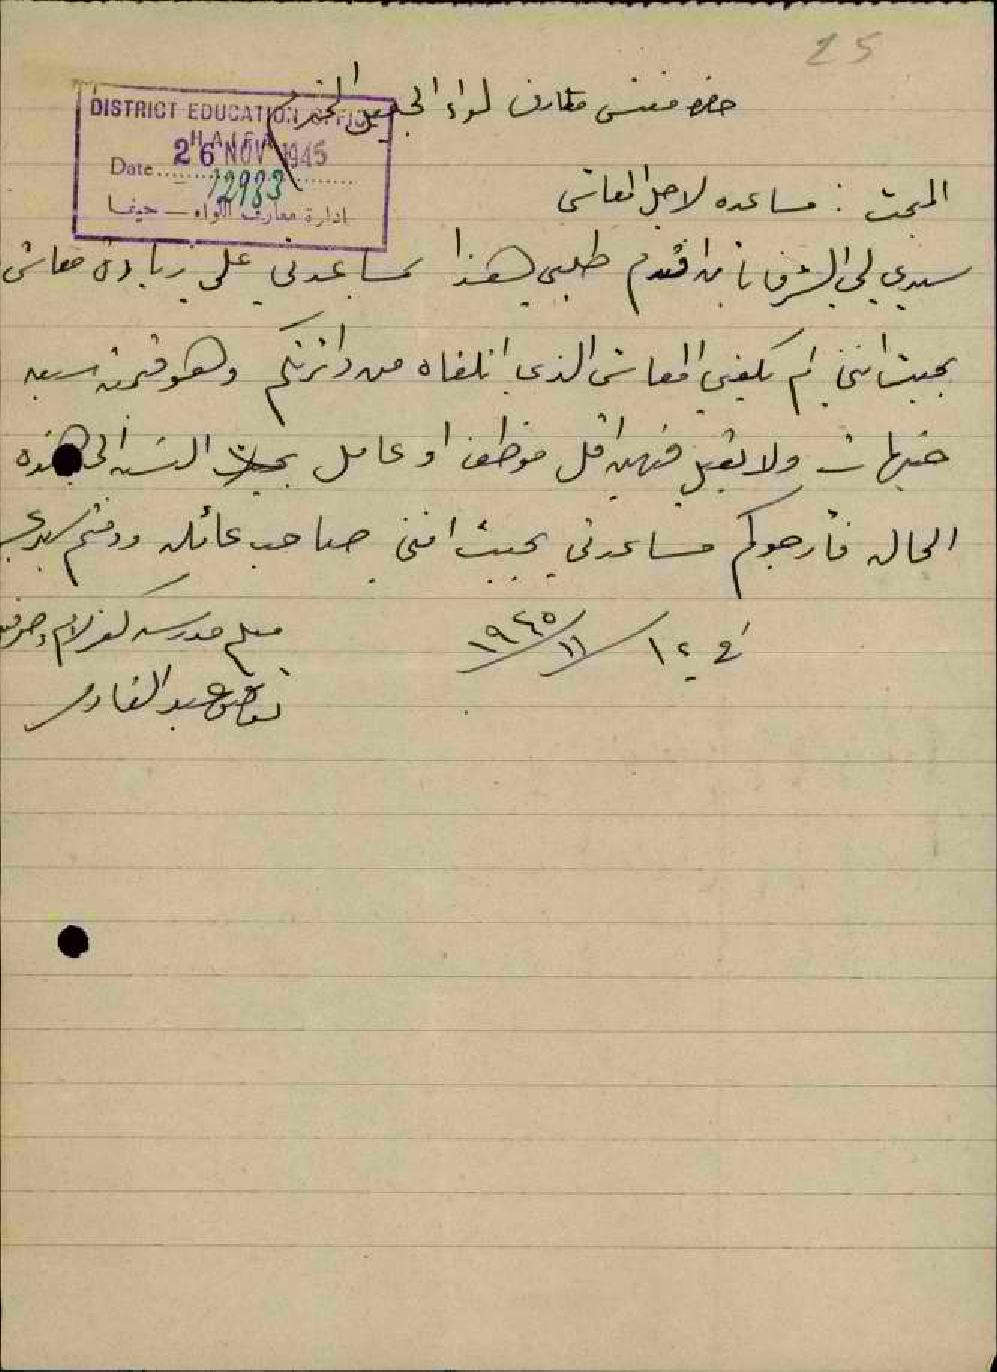 25
حضرة مفتش معارف لواء الجليل المحترم
DISTRICT EDUCATION OFFICE
HAIFA
26 NOV 1945
Date
12983
ادارة معارف اللواء — حيفا
المبحث : مساعده لاجل المعاش
سيدي لي الشرف بان اقدم طلبي هذا لمساعدتي على زيادة معاش
بحيث انني لم يكفيني المعاش الذي اتلقاه من دائرتكم وهو قيمته سبعه
جنيهات ولا يقبل فيهن اقل موظف او عامل بحيث النسبه الى هذه
الحاله فأرجوكم مساعدتي بحيث انني صاحب عائله ودمتم سيدي
في ١٢/١١/١٩٤٥
معلم مدرسه كفرلام وصرفند
عبد القادر